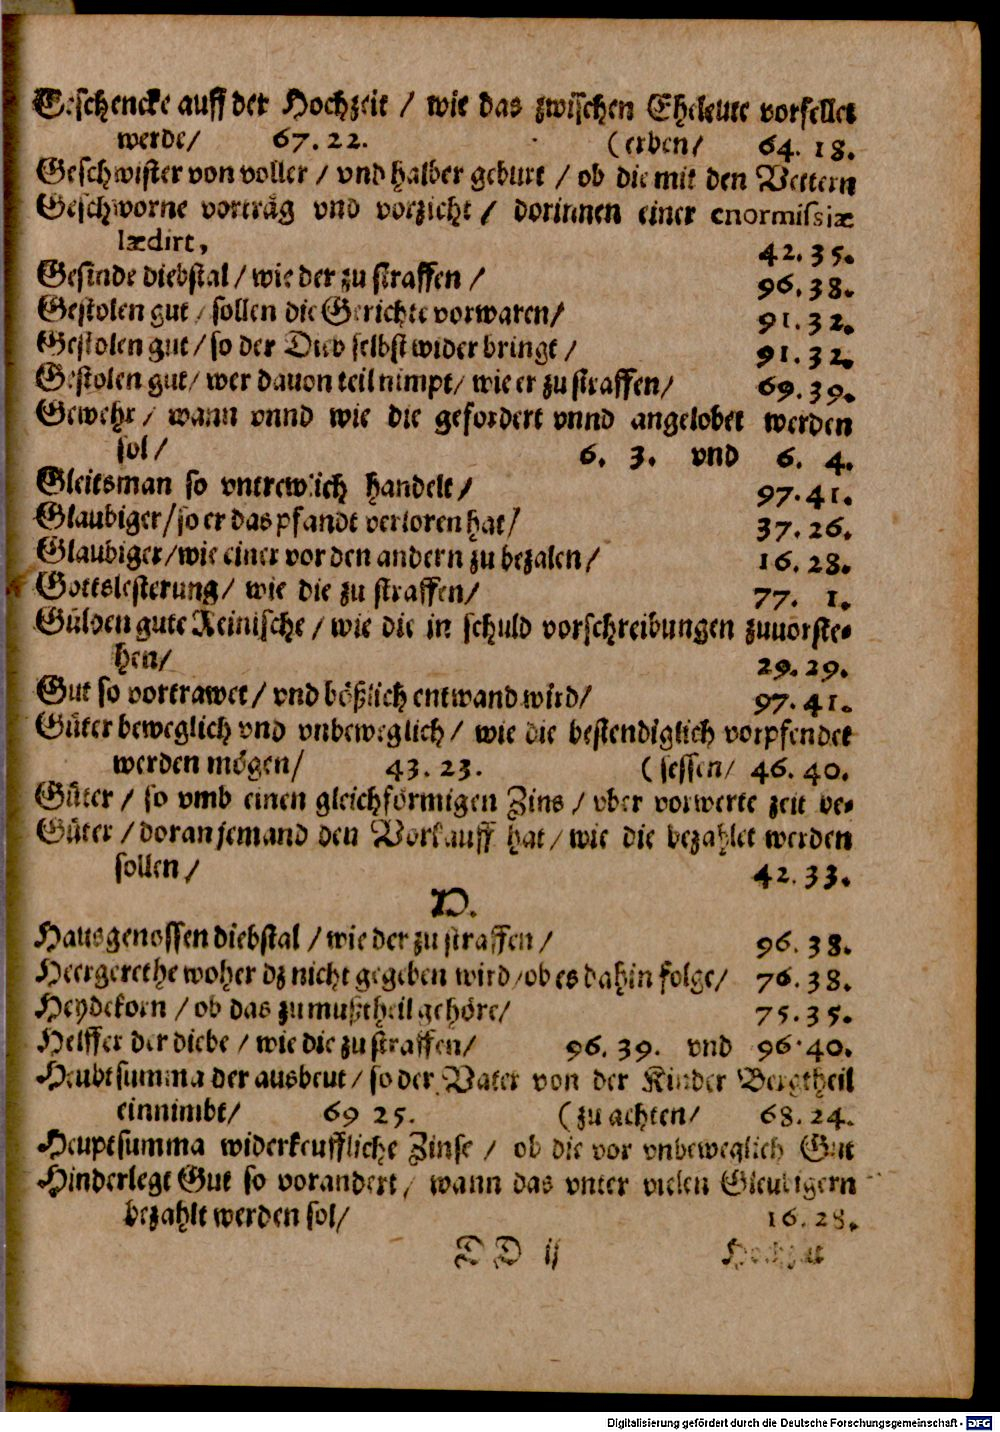 Geschencke auff der Hochzeit / wie das zwischen Eheleute vorfellet
werde/ 67. 22. (erben/ 64. 18.
Geschwister von voller / vnd halber geburt / ob die mit den Vettern
Geschworne vorträg vnd vorzicht / dorinnen einer enormissiæ
lædirt, 42. 35.
Gesinde diebstal / wie der zu straffen / 96. 38.
Gestolen gut / sollen die Gerichte vorwaren/ 91. 32.
Gestolen gut / so der Dieb selbst wider bringt / 91. 32.
Gestolen gut/ wer dauon teil nimpt/ wie er zu straffen/ 69. 39.
Gewehr / wann vnnd wie die gefordert vnnd angelobet werden
sol / 6. 3. vnd 6. 4.
Gleitsman so vntrewlich handelt / 97. 41.
Glaubiger / so er das pfandt verloren hat/ 37. 26.
Glaubiger/wie einer vor den andern zu bezalen / 16. 28.
Gottslesterung/ wie die zu straffen/ 77. 1.
Gülden gute Reinische / wie die in schuld vorschreibungen zuuorste-
hen/ 29. 29.
Gut so vortrawet / vnd bößlich entwand wird/ 97. 41.
Güter beweglich vnd vnbeweglich / wie die bestendiglich vorpfendet
werden mögen/ 43. 23. (sessen/ 46. 40.
Güter / so vmb einen gleichförmigen Zins / vber vorwerte zeit be-
Güter / doran jemand den Vorkauff hat / wie die bezahlet werden
sollen / 42. 33.
H.
Hausgenossen diebstal / wie der zu straffen / 96. 38.
Heergerethe woher dz nicht gegeben wird/ob es dahin folge/ 76. 38.
Heydekorn / ob das zu mußtheil gehöre/ 75. 35.
Helffer der diebe / wie die zu straffen/ 96. 39. vnd 96. 40.
Heubtsumma der ausbeut / so der Vater von der Kinder Bergtheil
einnimbt/ 69 25. (zu achten/ 68. 24.
Heuptsumma widerkeuffliche Zinse / ob die vor vnbeweglich Gut
Hinderlegt Gut so vorandert / wann das vnter vielen Gleubigern
bezahlt werden sol/ 16. 28.
DD ij Hochzeit
Digitalisierung gefördert durch die Deutsche Forschungsgemeinschaft - DFG